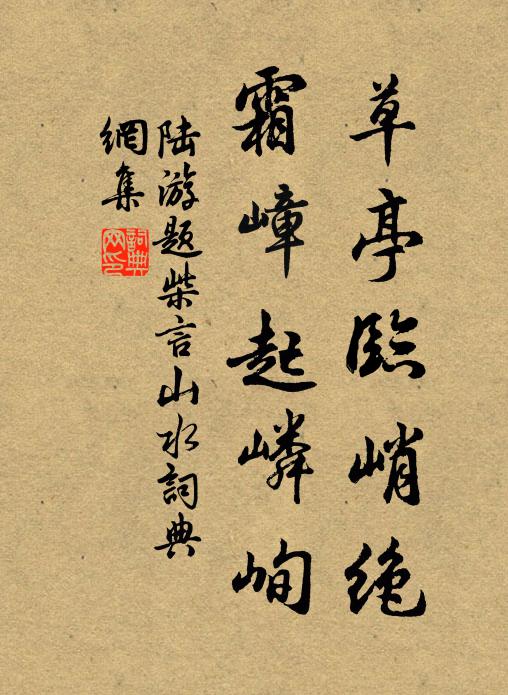 草亭臨峭絶
霜嶂起嶙峋
陆游题柴言山水詞典
網集
詞典
网印